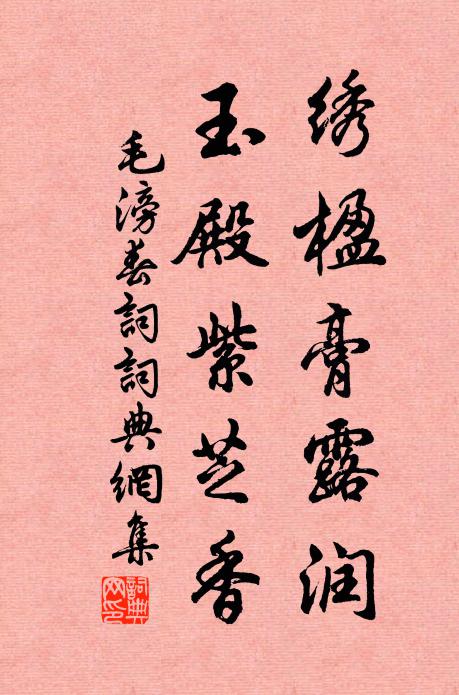 绣楹膏露润
玉殿紫芝香
毛滂春詞詞典網集
詞典网印